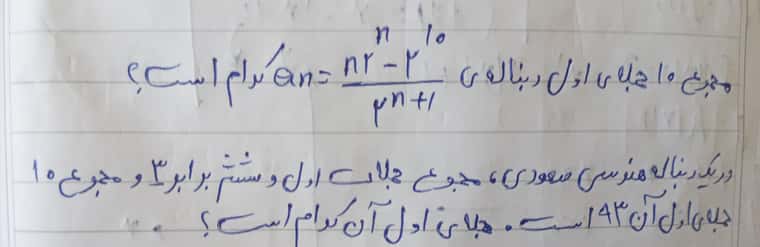 مجموع ۱۰ جملهی اول دنبالهی an = (n۲^n − ۲^۱۰) / (۲^n+۱) کدام است؟
در یک دنباله هندسی صعودی، مجموع جملات اول و ششم برابر ۳ و مجموع ۱۰
جملهی اول آن ۹۳ است. جملهی اول آن کدام است؟